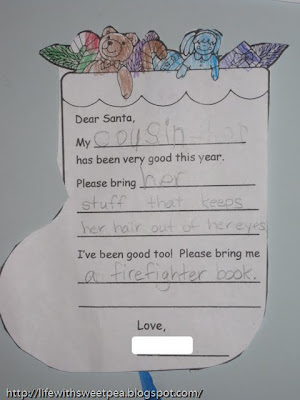 Dear Santa,
My cousin
has been very good this year.
Please bring her
stuff that keeps
her hair out of her eyes
I've been good too! Please bring me
a firefighter book.
Love,
http://lifewithsweetpea.blogspot.com/